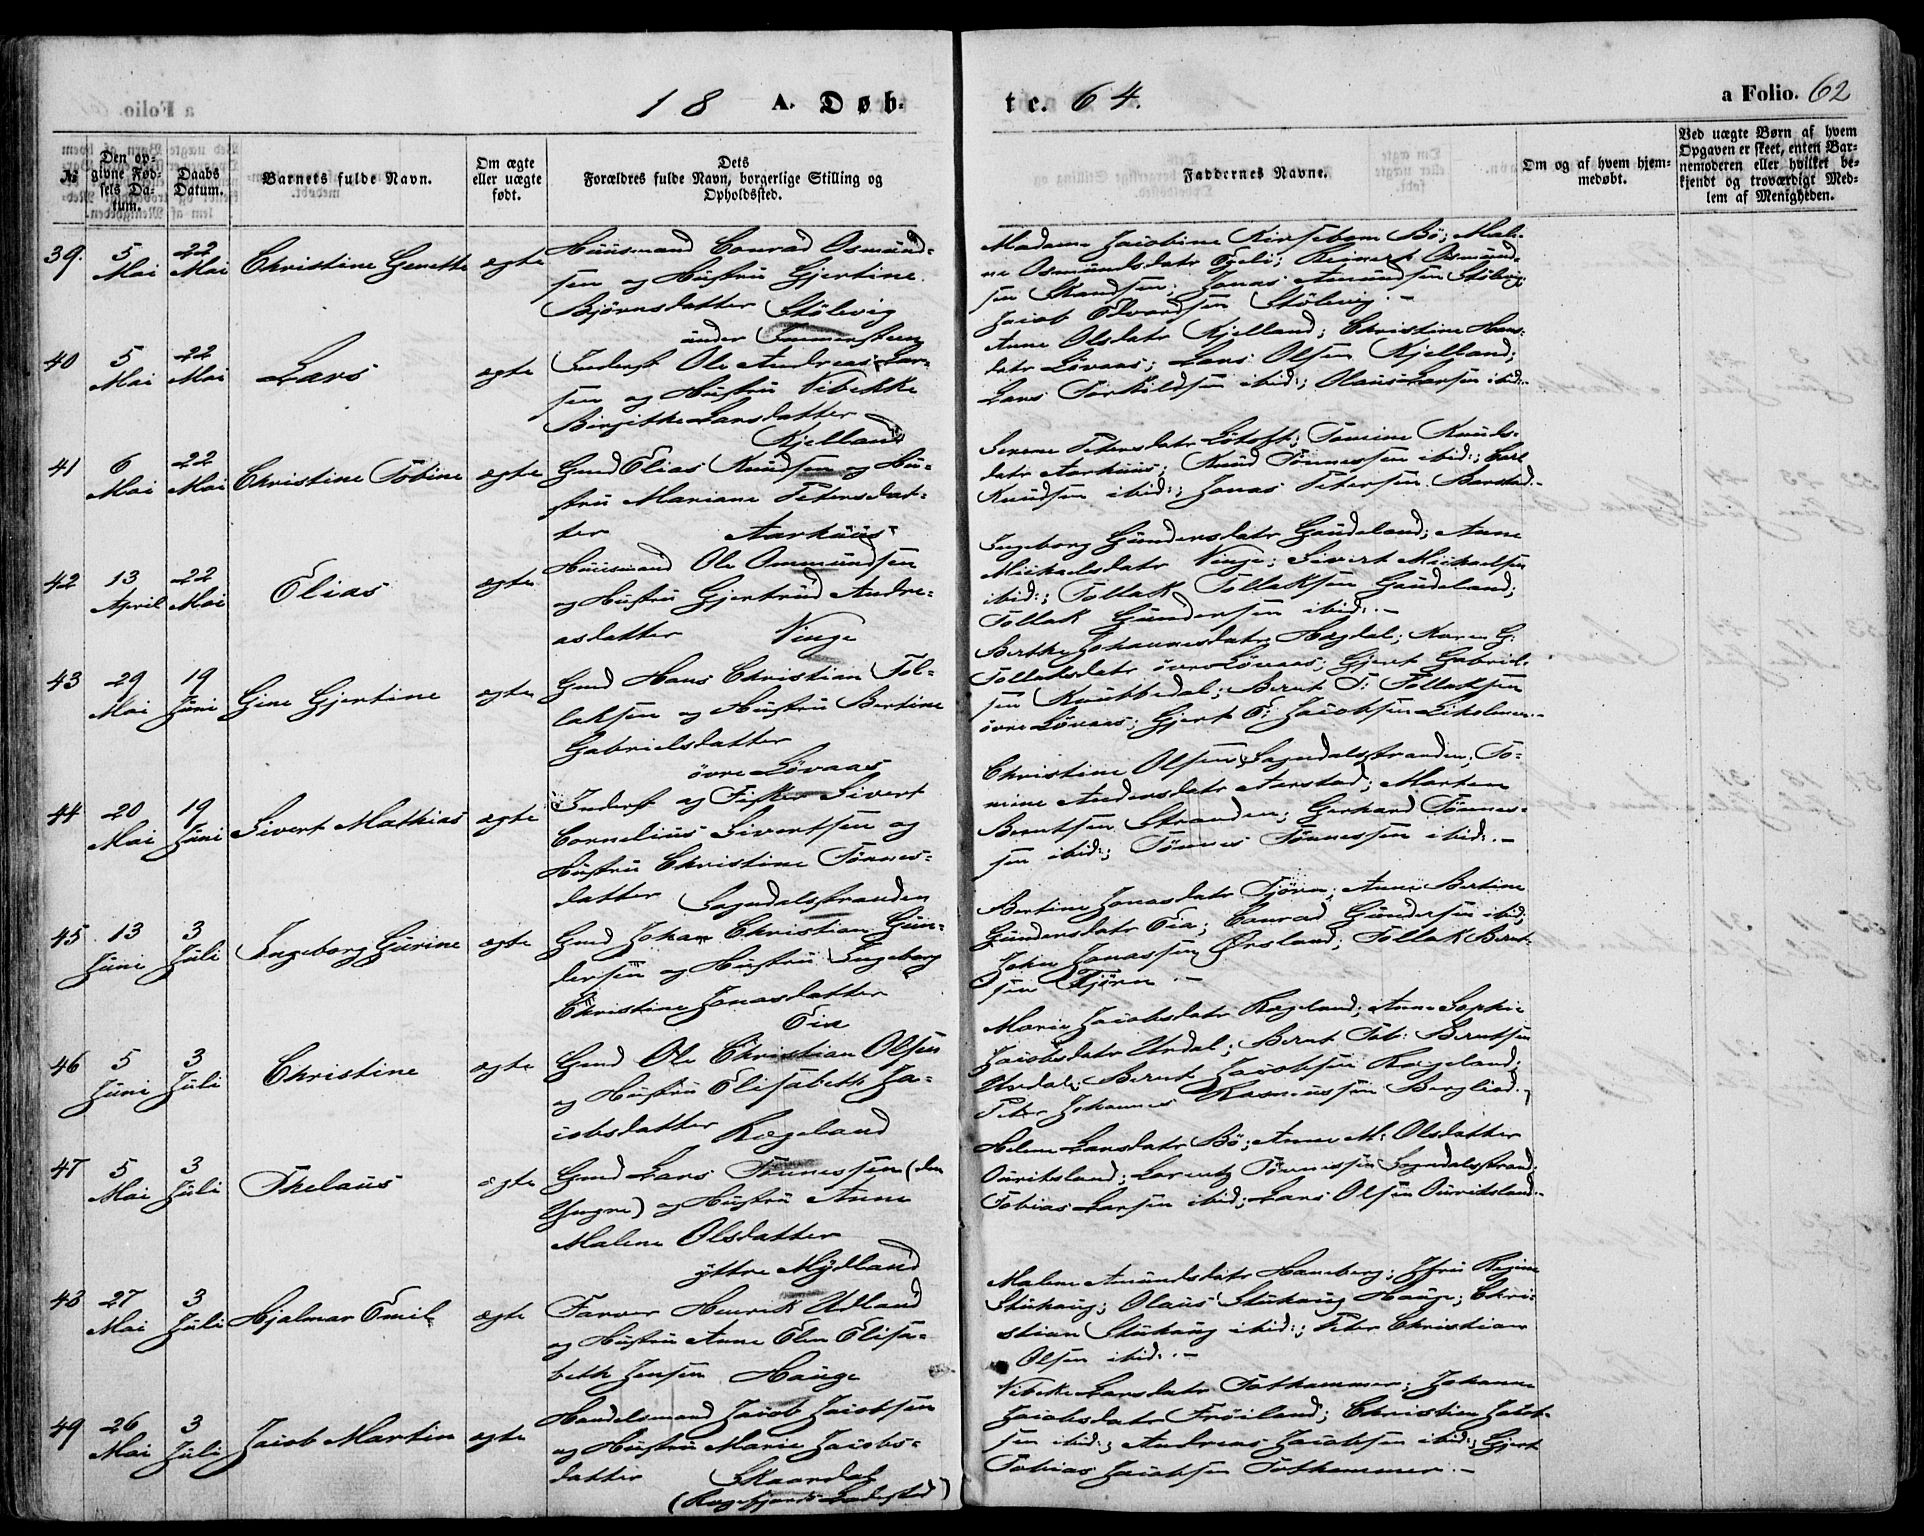 18 A. Døb-
te. 64.
a Folio. 62
№
Den op-
givne Fød-
sels Da-
tum.
Daabs
Datum.
Barnets fulde Navn.
Om ægte
eller uægte
født.
Dets
Forældres fulde Navn, borgerlige Stilling og
Opholdssted.
Faddernes Navne.
Om og af hvem hjem-
medøbt.
Ved uægte Børn af hvem
Opgaven er skeet, enten Bar-
nemoderen eller hvilket be-
kjendt og troværdigt Med-
lem af Menigheden.
39. 5 Mai 22 Mai Christine Genette ægte
Huusmand Conrad Osmund-
sen og Hustru Gjertine
Bjørnsdatter Stölevig
under
Madame Jacobine Kirsebom Bö; Mali-
ne Osmundsdatr; Reinert Osmund-
sen; Jonas Amundsen Stölevig;
Jacob Edvardsen Stölevig.-
40 5 Mai 22 Mai Lars ægte
Inderst Ole Andreas Lar-
sen og Hustru Vibekke
Birgithe Larsdatter
Kjelland
Anne Olsdatr Kjelland; Christine Hans-
datr Lövaas; Lars Olsen Kjelland;
Lars Torkildsen ibid:; Olaus Larsen ibid:.
41 6 Mai 22 Mai Christine Tobine ægte
Gmd Elias Knudsen og Hu-
stru Mariane Petersdat-
ter Aarhuus
Serene Petersdatr; Tomine Knuds-
datr Aarhuus; Knud Tönnessen ibid:; Carl
Knudsen ibid:; Jonas Petersen Barstad.-
42 13 April 22 Mai Elias ægte
Huusmand Ole Ommundsen
og Hustru Gjertrud Andre-
asdatter Vinge
Ingeborg Gundersdatr Gaudeland; Anne
Michaelsdatr Vinge; Sivert Michaelsen
ibid:; Tollak Tollaksen Gaudeland;
Tollak Gundersen ibid:.-
43 29 Mai 19 Juni Gine Gjertine ægte
Gmd Hans Christian Tol-
laksen og Hustru Bertine
Gabrielsdatter
övre Lövaas
Berthe Johannesdatr Hogdal; Karen G:
Tollaksdatr övre Lövaas; Gjert Gabriel-
sen; Bernt T: Tollaksen
övre Lövaas; Gjert E: Jacobsen
44 20 Mai 19 Juni Sivert Mathias ægte
Inderst og Fisker Sivert
Cornelius Sivertsen og
Hustru Christine Tönnes-
datter Sogndalsstranden
Christine Olsen Sogndalsstranden; To-
mine Andersdatr Aarstad; Marten
Berntsen Stranden; Gerhard Tönnes-
sen ibid:; Tönnes Tönnessen ibid:.-
45 13 Juni 3 Juli Ingeborg Gurine ægte
Gmd Johan Christian Gun-
dersen og Hustru Ingeborg
Christine Jonasdatter
Eia
Bertine Jonasdatr Tjörn; Anne Bertine
Gundersdatr Eia; Conrad Gundersen ibid;
John Jonassen Örsland; Tollak Bernt-
sen Tjörn.-
46 5 Juni 3 Juli Christine ægte
Gmd Ole Christian Olsen
og Hustru Elisabeth Ja-
cobsdatter Rægeland
Marie Jacobsdatr Rægeland; Anne Sophie
Jacobsdatr Urdal; Bernt Tob: Berntsen
Urdal; Bernt Jacobsen Rægeland;
Peter Johannes Rasmussen Bergliod.-
47 5 Mai 3 Juli Thelaus ægte
Gmd Lars Tönnessen (den
Yngre) og Hustru Anne
Malene Olsdatter
yttre Mydland
Helene Larsdatr Bö; Anne M: Olsdatter
Ouritsland; Lorentz Tönnessen Sogndalsstrand;
Tobias Larsen ibid; Lars Olsen Ouritsland.-
48 27 Mai 3 Juli Hjalmar Emil ægte
Farver Henrik Udland
og Hustru Anne Elen Elisa-
beth Jensen Hauge
Malene Amundsdatr Haneberg; Jfru Regine
Stuhaug; Olaus Stuhaug Hauge; Chri-
stian Stuhaug ibid:; Peter Christian
Olsen ibid:.-
49 26 Mai 3 Juli Jacob Martin ægte
Handelsmand Jacob Jacobsen
og Hustru Marie Jacobs-
datter Skaardal
(Rægefjords Ladested)
Vibeke Larsdatr Tothammer; Johanne
Jacobsdatr Fröiland; Christian Jacob-
sen ibid:; Andreas Jacobsen ibid:; Gjert
Tobias Jacobsen Tothammer.-